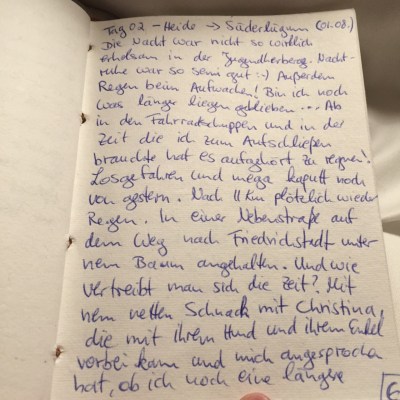 Tag 02 – Heide → Süderlügum (01.08.)
Die Nacht war nicht so wirklich
erholsam in der Jugendherberg. Nacht-
ruhe war so semi gut :-) Außerdem
Regen beim Aufwachen! Bin ich noch
was länger liegen geblieben ... Ab
in den Fahrradschuppen und in der
Zeit die ich zum Aufschließen
brauchte hat es aufgehört zu regnen!
Losgefahren und mega kaputt noch
von gestern. Nach 11 Km plötzlich wieder
Regen. In einer Nebenstraße auf
dem Weg nach Friedrichstadt unter
nem Baum angehalten. Und wie
vertreibt man sich die Zeit? Mit
nem netten Schnack mit Christina,
die mit ihrem Hund und ihrem Enkel
vorbei kam und mich angesprochen
hat, ob ich noch eine längere
6